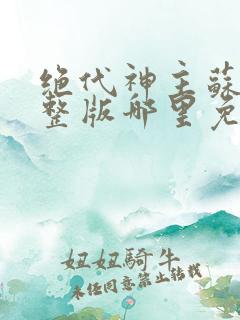 绝代神主蘇
整版哪里免
妞妞騎牛
未经同意禁止转载